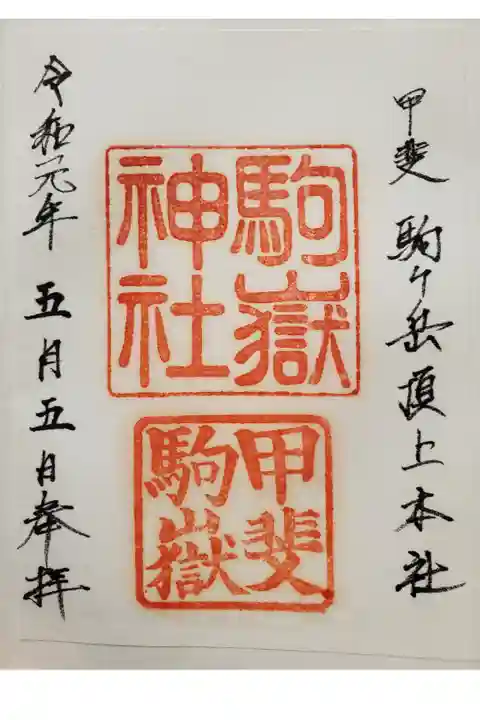 甲斐 駒ヶ岳頂上本社
駒嶽
神社
甲斐
駒嶽
令和元年 五月五日奉拝